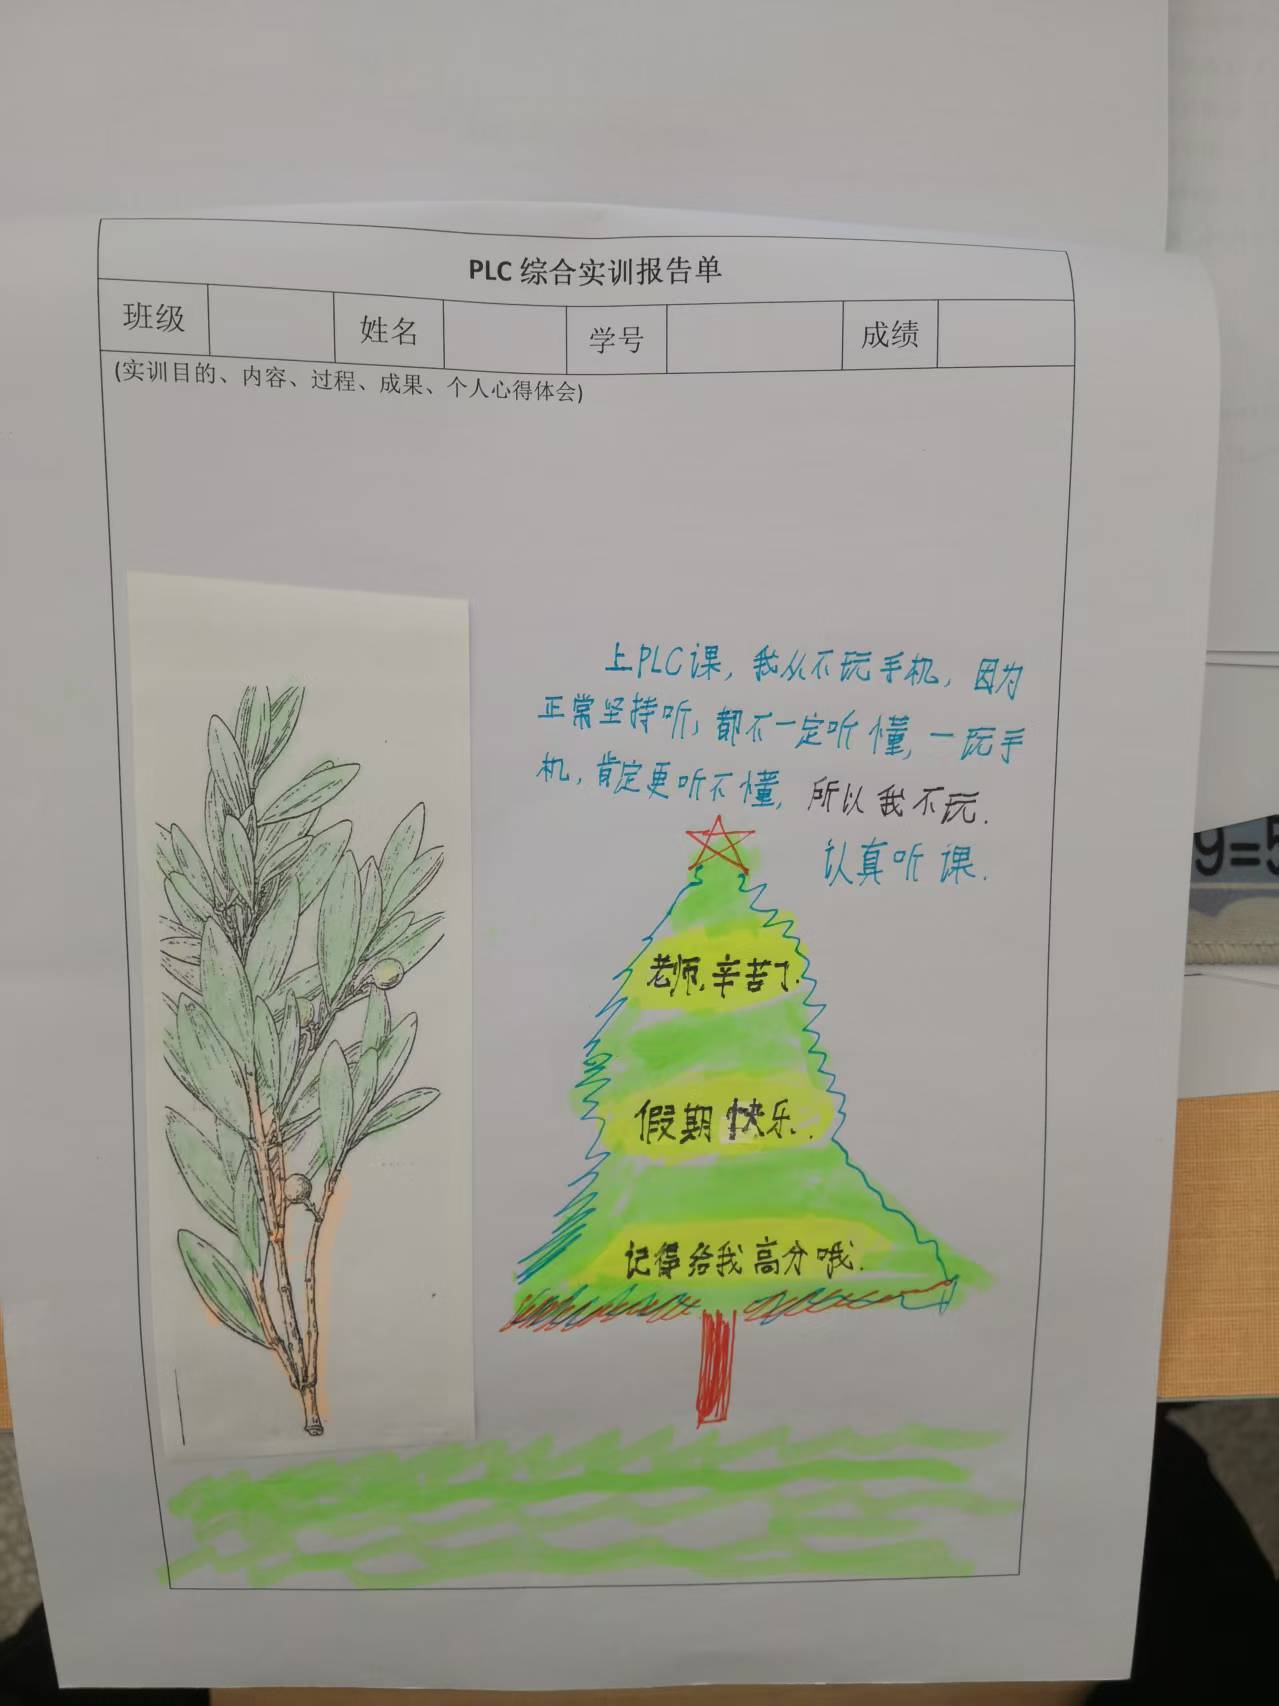 PLC 综合实训报告单
班级 姓名 学号 成绩
(实训目的、内容、过程、成果、个人心得体会)
上PLC课，我从不玩手机，因为
正常坚持听，都不一定听懂，一玩手
机，肯定更听不懂，所以我不玩.
认真听课.
老师，辛苦了.
假期快乐.
记得给我高分哦.
9=5